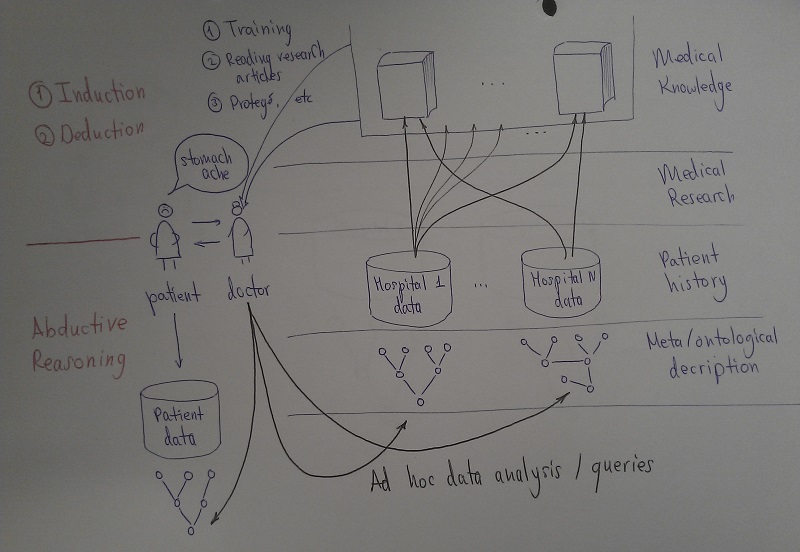 ① Training
② Reading research
articles
③ Protegé, etc
① Induction
② Deduction
stomach
ache
Medical
Knowledge
Medical
Research
patient
doctor
Hospital 1
data
...
Hospital N
data
Patient
history
Abductive
Reasoning
Meta/ontological
decription
Patient
data
Ad hoc data analysis / queries